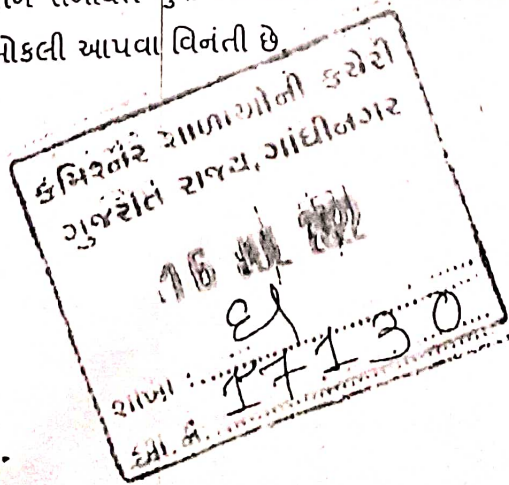 મોકલી આપવા વિનંતી છે
કમિશ્નર શાળાઓની કચેરી
ગુજરાત રાજ્ય, ગાંધીનગર
16
શાખા :
આ. નં. 17130